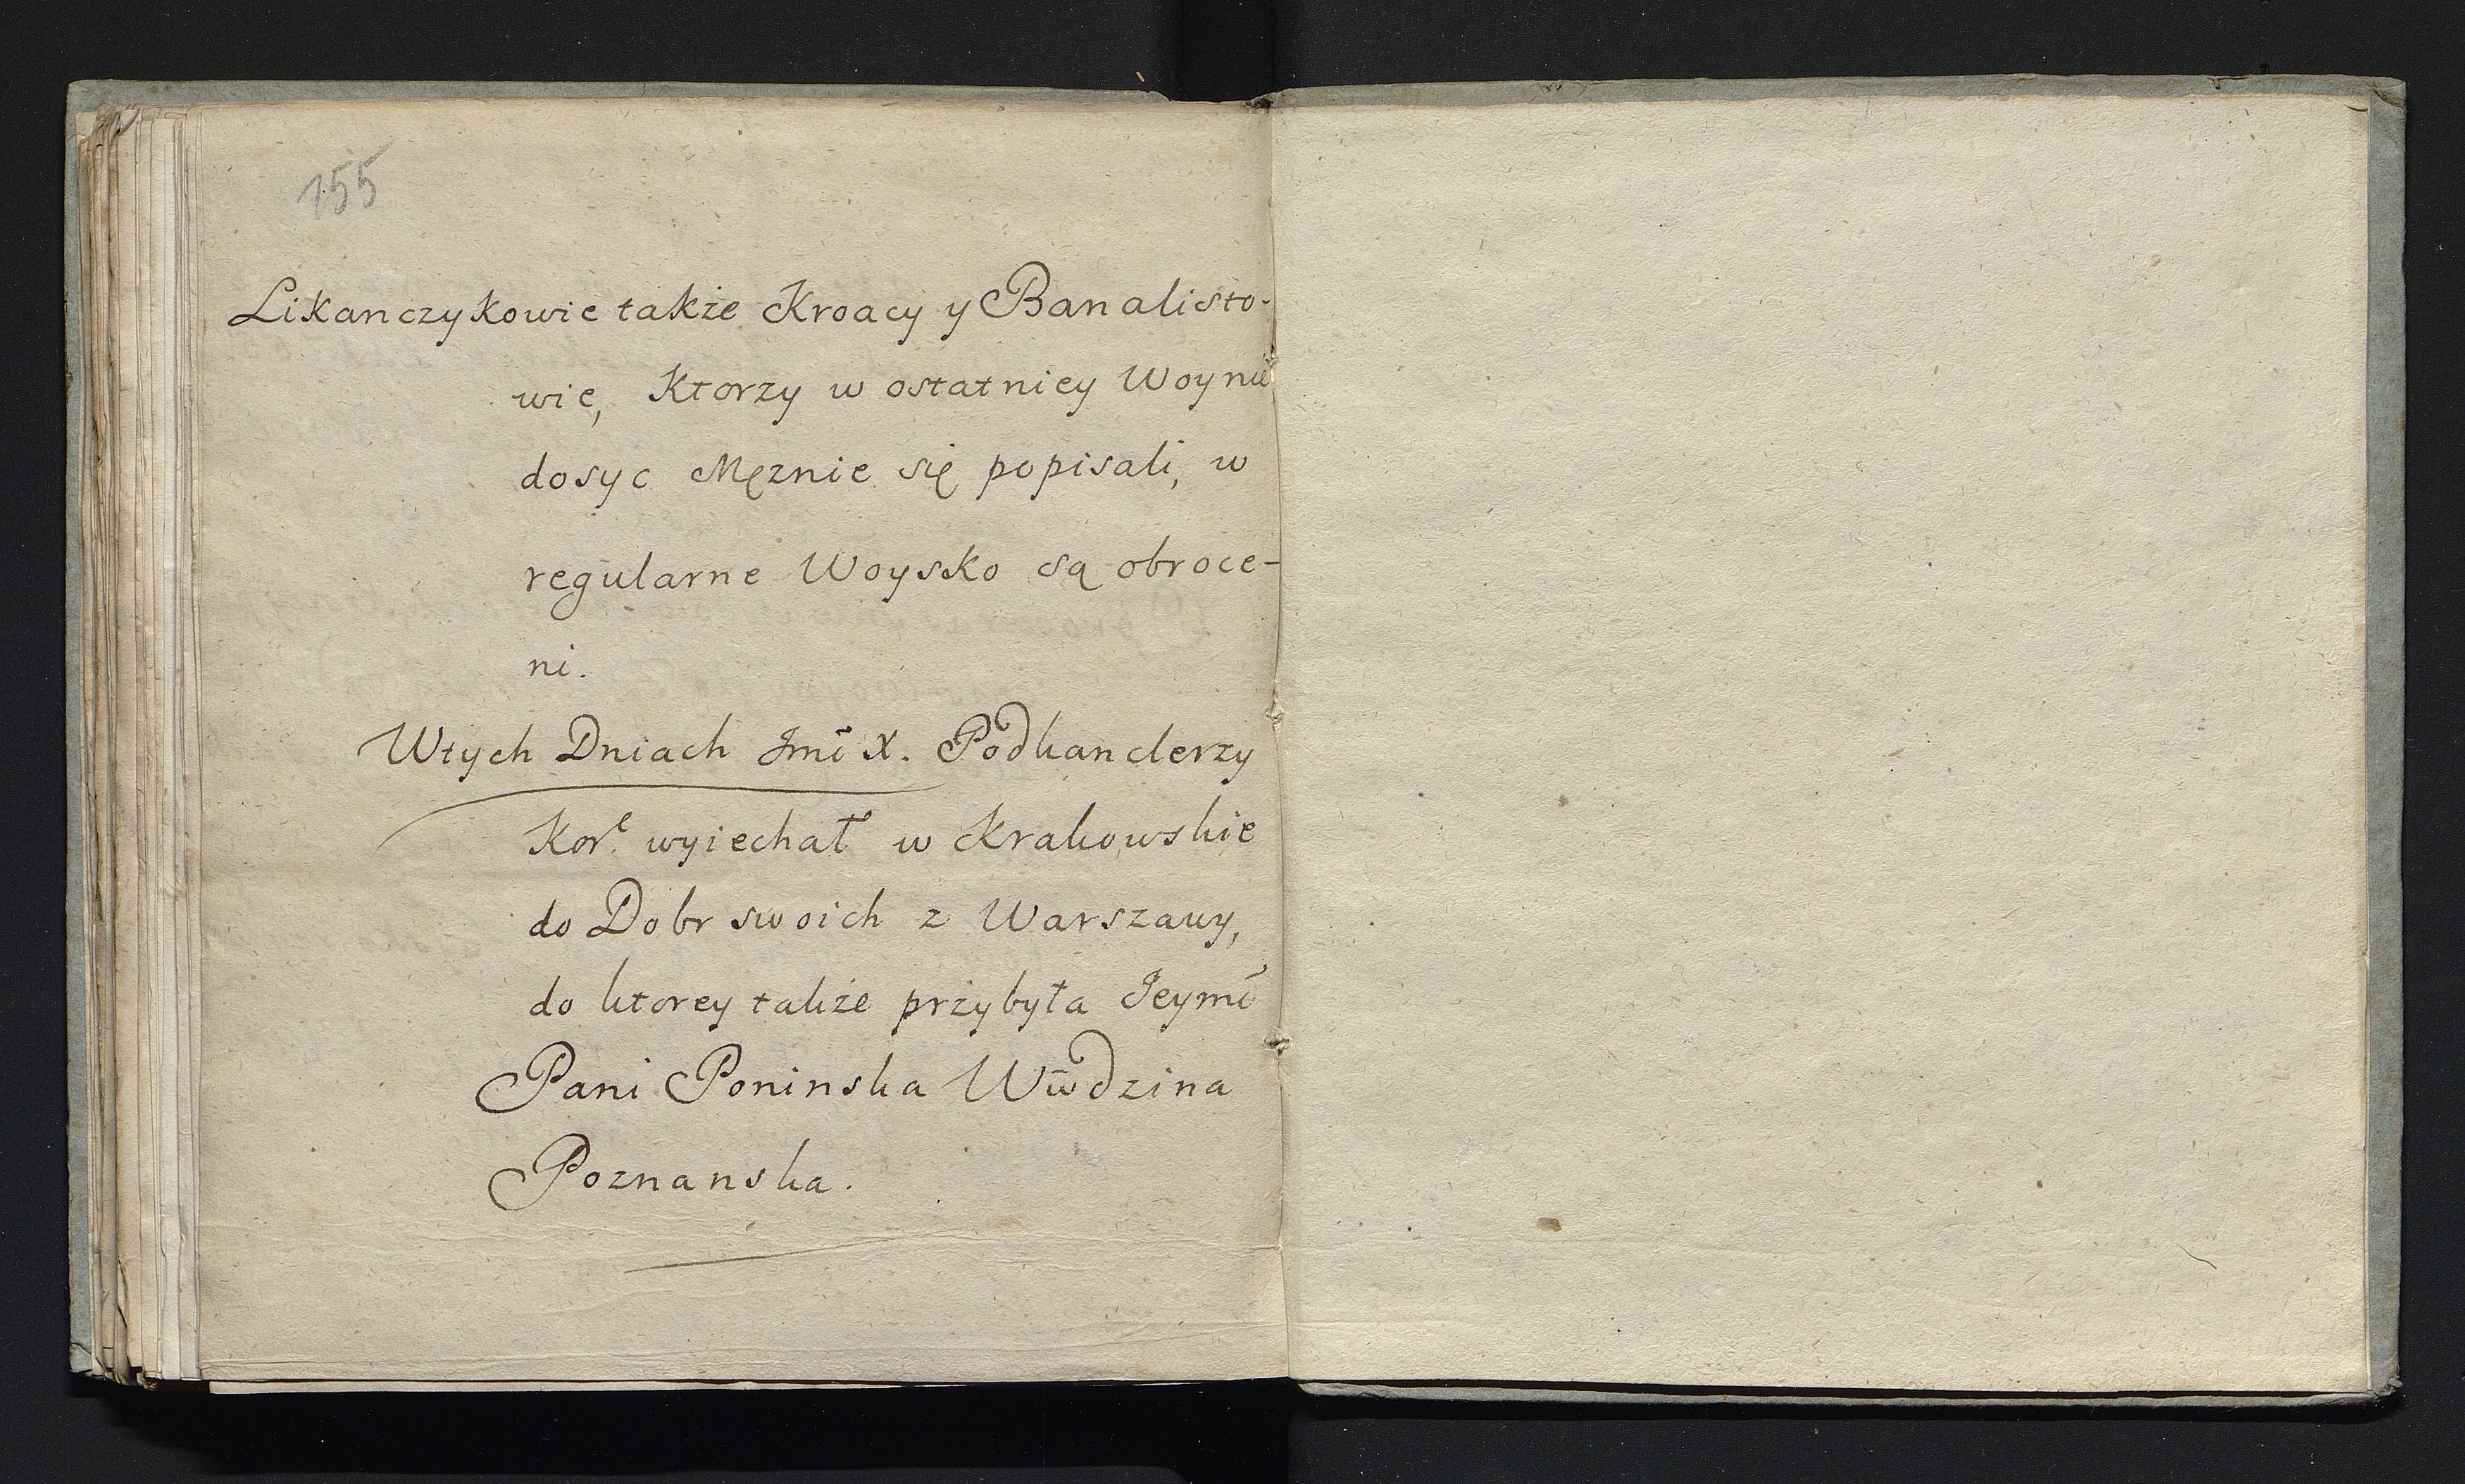 155
Likanczykowie także Kroacy y Banalisto-
wie, Ktorzy w ostatniey Woynie
dosyc Męznie się popisali, w
regularne Woysko są obroce-
ni.
Wtych Dniach Jmć X. Podkanclerzy
Kor. wyiechał w Krakowskie
do Dobr swoich z Warszawy,
do ktorey także przybyła Jeymć
Pani Poninska Wwdzina
Poznanska.